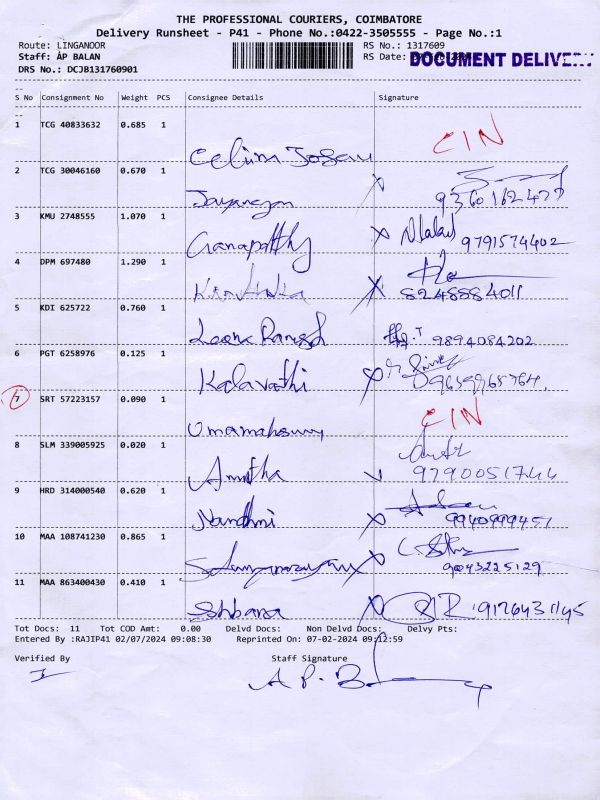 THE PROFESSIONAL COURIERS, COIMBATORE
Delivery Runsheet - P41 - Phone No.:0422-3505555 - Page No.:1
Route: LINGANOOR RS No.: 1317609
Staff: AP BALAN RS Date: DOCUMENT DELIVE
DRS No.: DCJB131760901
S No Consignment No Weight PCS Consignee Details Signature
1 TCG 40833632 0.685 1 CIN
Celina Josau
2 TCG 30046160 0.670 1
Jayaragan 9360162477
3 KMU 2748555 1.070 1
Ganapathy 9791574402
4 DPM 697480 1.290 1
8248884011
5 KDI 625722 0.760 1
Leena Ramesh 9894084202
6 PGT 6258976 0.125 1
Kalavathi 9659965764
7 SRT 57223157 0.090 1 CIN
Umamaheswary
8 SLM 339005925 0.020 1
Amutha 9790051744
9 HRD 314000540 0.620 1
Nandhni 9940999457
10 MAA 108741230 0.865 1
9043225129
11 MAA 863400430 0.410 1
Shbana 9176431145
Tot Docs: 11 Tot COD Amt: 0.00 Delvd Docs: Non Delvd Docs: Delvy Pts:
Entered By :RAJIP41 02/07/2024 09:08:30 Reprinted On: 07-02-2024 09:12:59
Verified By Staff Signature
A P. B